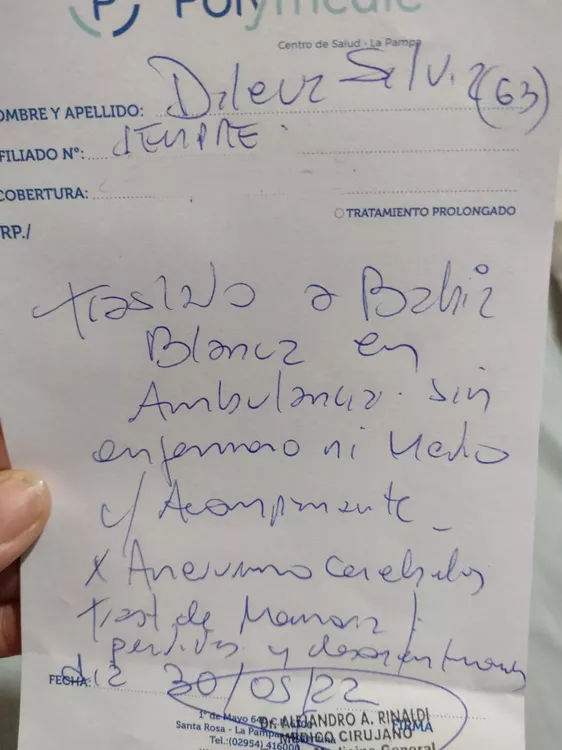 Polymedic
Centro de Salud - La Pampa
NOMBRE Y APELLIDO: Silvia (63)
FILIADO N°: SEMPRE.
COBERTURA:
TRATAMIENTO PROLONGADO
RP./
traslado a Bahia
Blanca en
Ambulancia. sin
enfermero ni Medico
c/ Acompañante
x Aneurisma Cerebelos
Trast de Memoria /
perdidas y desorientaciones
FECHA: dia 30/05/22
1° de Mayo 64
Santa Rosa - La Pampa
Tel.:(02954) 416000
Dr. ALEJANDRO A. RINALDI
MEDICO CIRUJANO
FIRMA
Medicina General